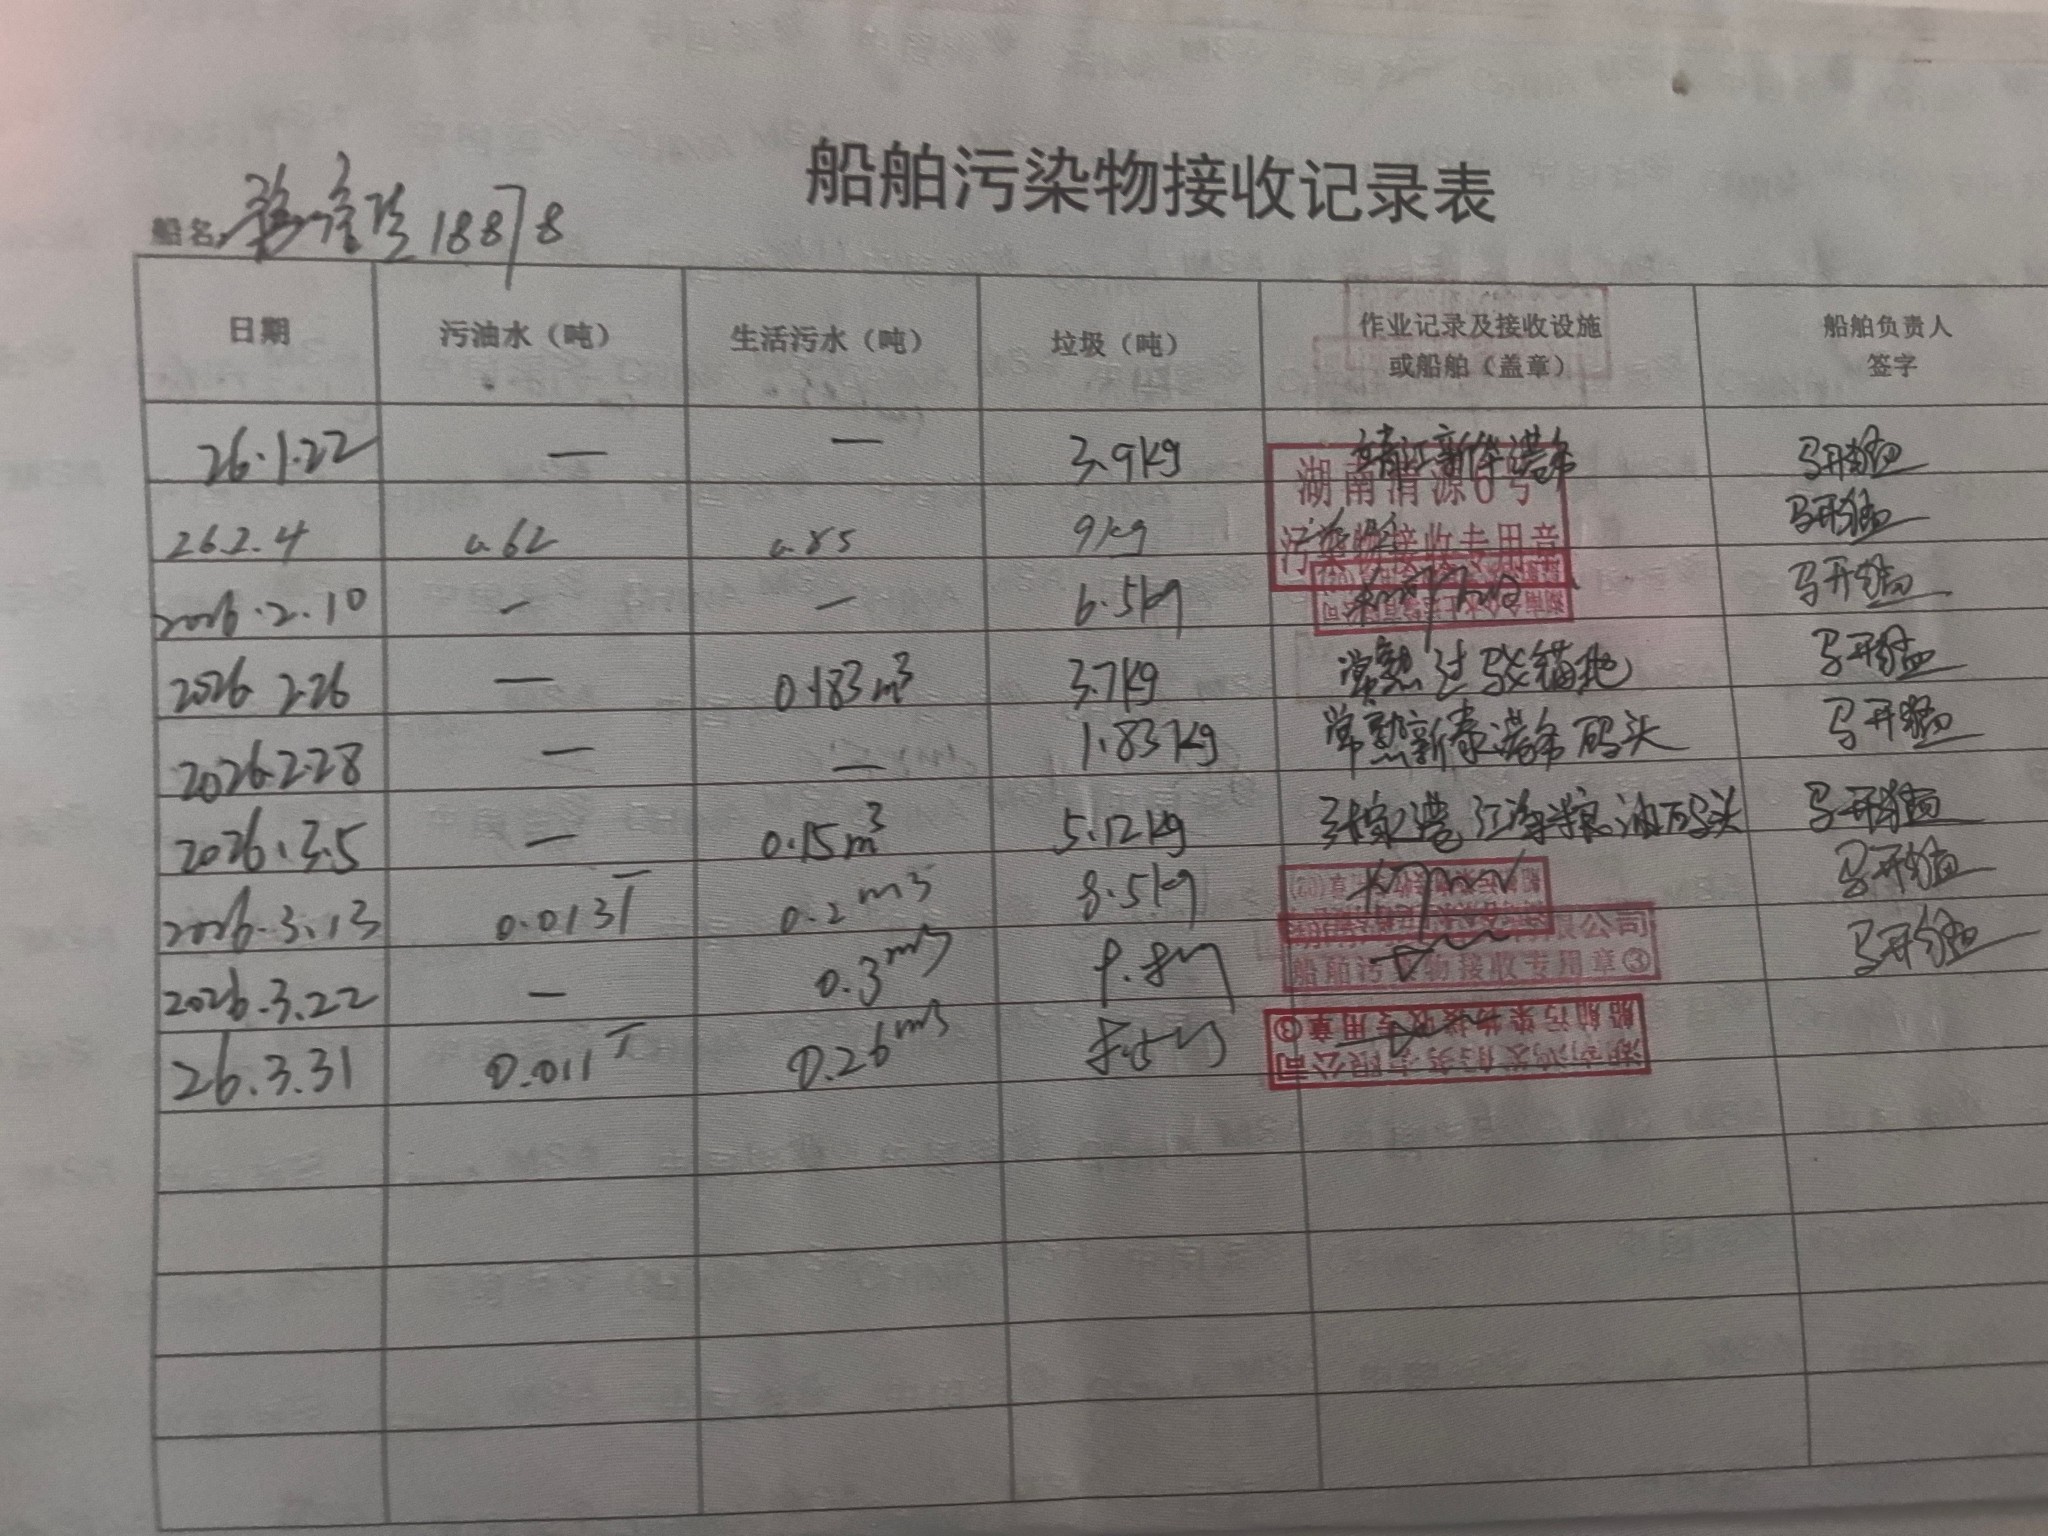 船舶污染物接收记录表
船名: 18878
日期 污油水（吨） 生活污水（吨） 垃圾（吨） 作业记录及接收设施或船舶（盖章） 船舶负责人签字
26.1.22 — — 3.9kg 靖江新华港务 马开猛
湖南清源6号
26.2.4 0.62 0.85 9kg 马开猛
污染物接收专用章
2026.2.10 — — 6.5kg 马开猛
2026 2.26 — 0.183m³ 3.7kg 常熟过驳锚地 马开猛
2026.2.28 — — 1.83kg 常熟新泰港务码头 马开猛
2026.3.5 — 0.15m³ 5.12kg 张家港江海粮油码头 马开猛
2026.3.13 0.013T 0.2m3 8.5kg 马开猛
限公司
2026.3.22 — 0.3m3 马开猛
船舶污染物接收专用章③
26.3.31 0.011T 0.26m3
船舶污染物接收专用章③